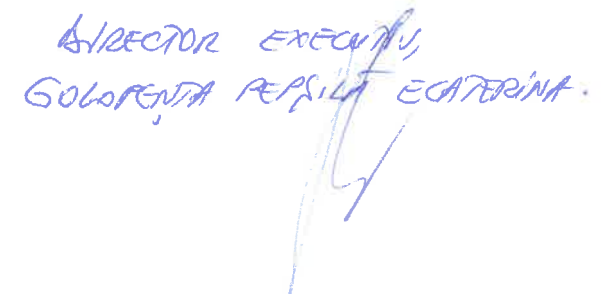 DIRECTOR EXECUTIV,
GOLOPENȚA PEPSILA ECATERINA.